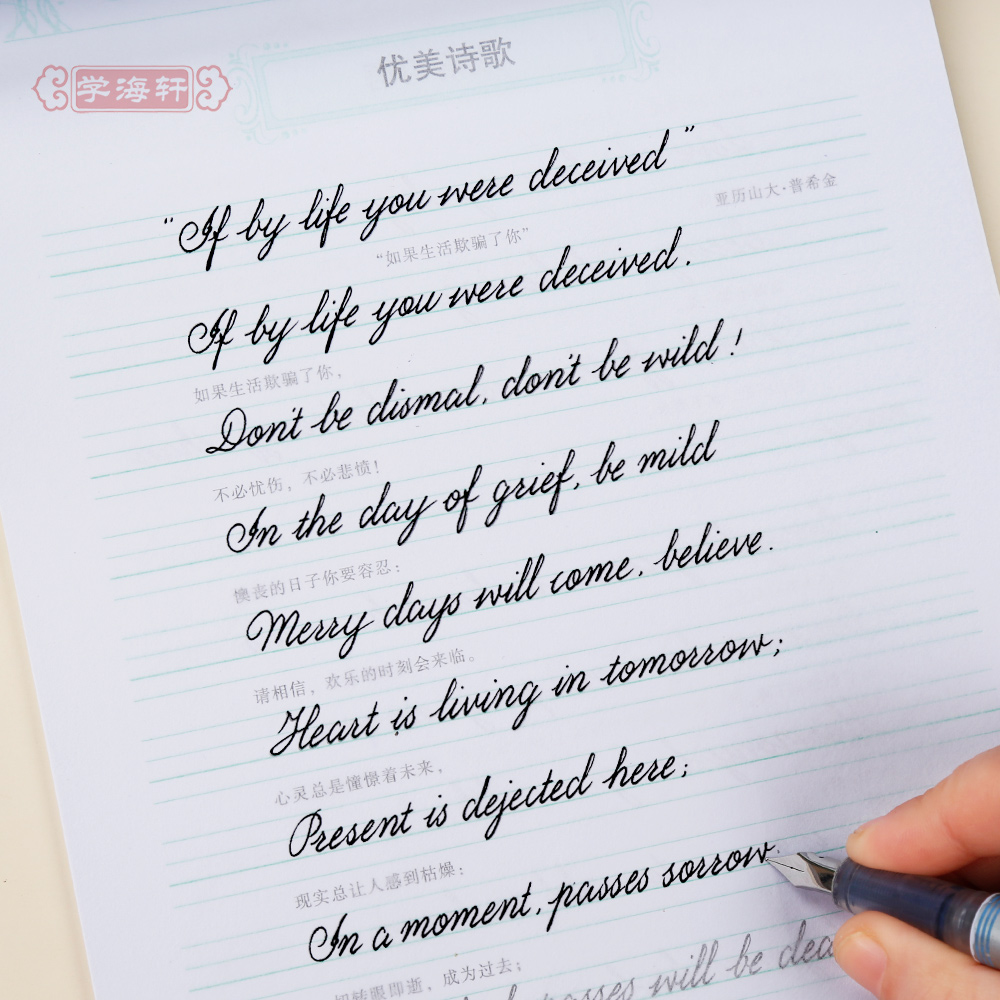 学海轩
优美诗歌
"If by life you were deceived"
亚历山大·普希金
“如果生活欺骗了你”
If by life you were deceived.
如果生活欺骗了你，
Don't be dismal, don't be wild!
不必忧伤，不必悲愤！
In the day of grief, be mild
懊丧的日子你要容忍：
Merry days will come, believe.
请相信，欢乐的时刻会来临。
Heart is living in tomorrow;
心灵总是憧憬着未来，
Present is dejected here;
现实总让人感到枯燥：
In a moment, passes sorrow.
转眼即逝，成为过去；
passes will be